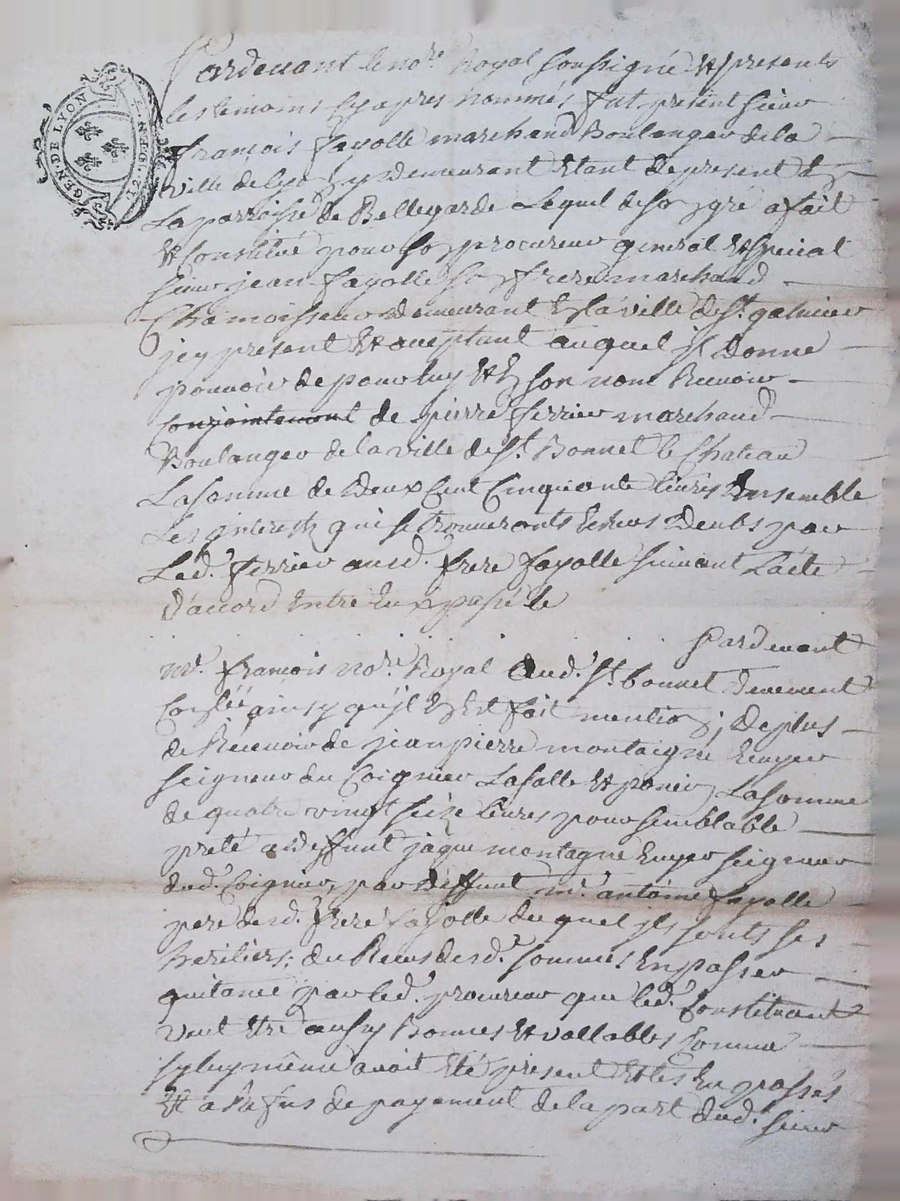 GEN. DE LYON
Pardevant le nore Royal soussigné et presents
les temoins cy apres nommés, fut présent sieur
françois fayolle marchand Boulanger de la
ville de Lyon y demeurant etant de present en
La parroisse de Bellegarde Lequel de son gré a fait
et Constitué pour son procureur general et special
sieur jean fayolle son frere marchand
Chamoisseur demeurant en la ville de St galmier
jcy present et acceptant auquel jl donne
pouvoir de pour luy et en son nom Recevoir
conjointement de pierre ferrier marchand
Boulanger de la ville de St Bonnet le Chateau
La somme de deux Cent Cinquante livres Ensemble
Les jnterests qui se trouveronts Echus deubs par
Led. ferrier ausd. frere fayolle suivant L'acte
D'accord Entre Eux passé le
Pardevant
mr. françois nore. Royal aud. St. bonnet Deuement
Conslée ainsy qu'jl En Est fait mention; De plus
de Recevoir de jean pierre montaigne Ecuyer
seigneur du Coignier Lasalle et La somme
de quatre vingt seize livres pour semblable
preté a deffunt jaque montagne Ecuyer seigneur
dud. Coignier, par deffunt mr. antoine fayolle
pere desd. frere fayolle duquel jls sonts ses
heritiers; du Reçus desd. sommes En passer
quitance par led. procureur que led. Constituant
veut etre aussy Bonnes et vallables Comme
sy luy même avoit été present et les Eu passés
et a Refus de payement de la part dud. sieur